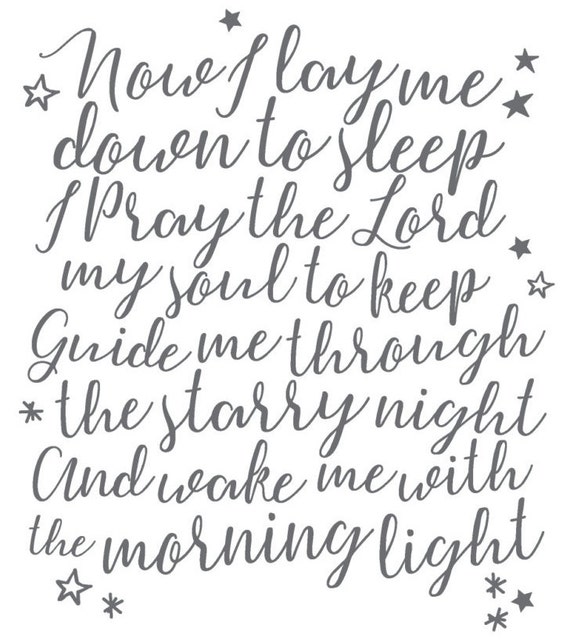 Now I lay me
down to sleep
I Pray the Lord
my soul to keep
Guide me through
the starry night
And wake me with
the morning light